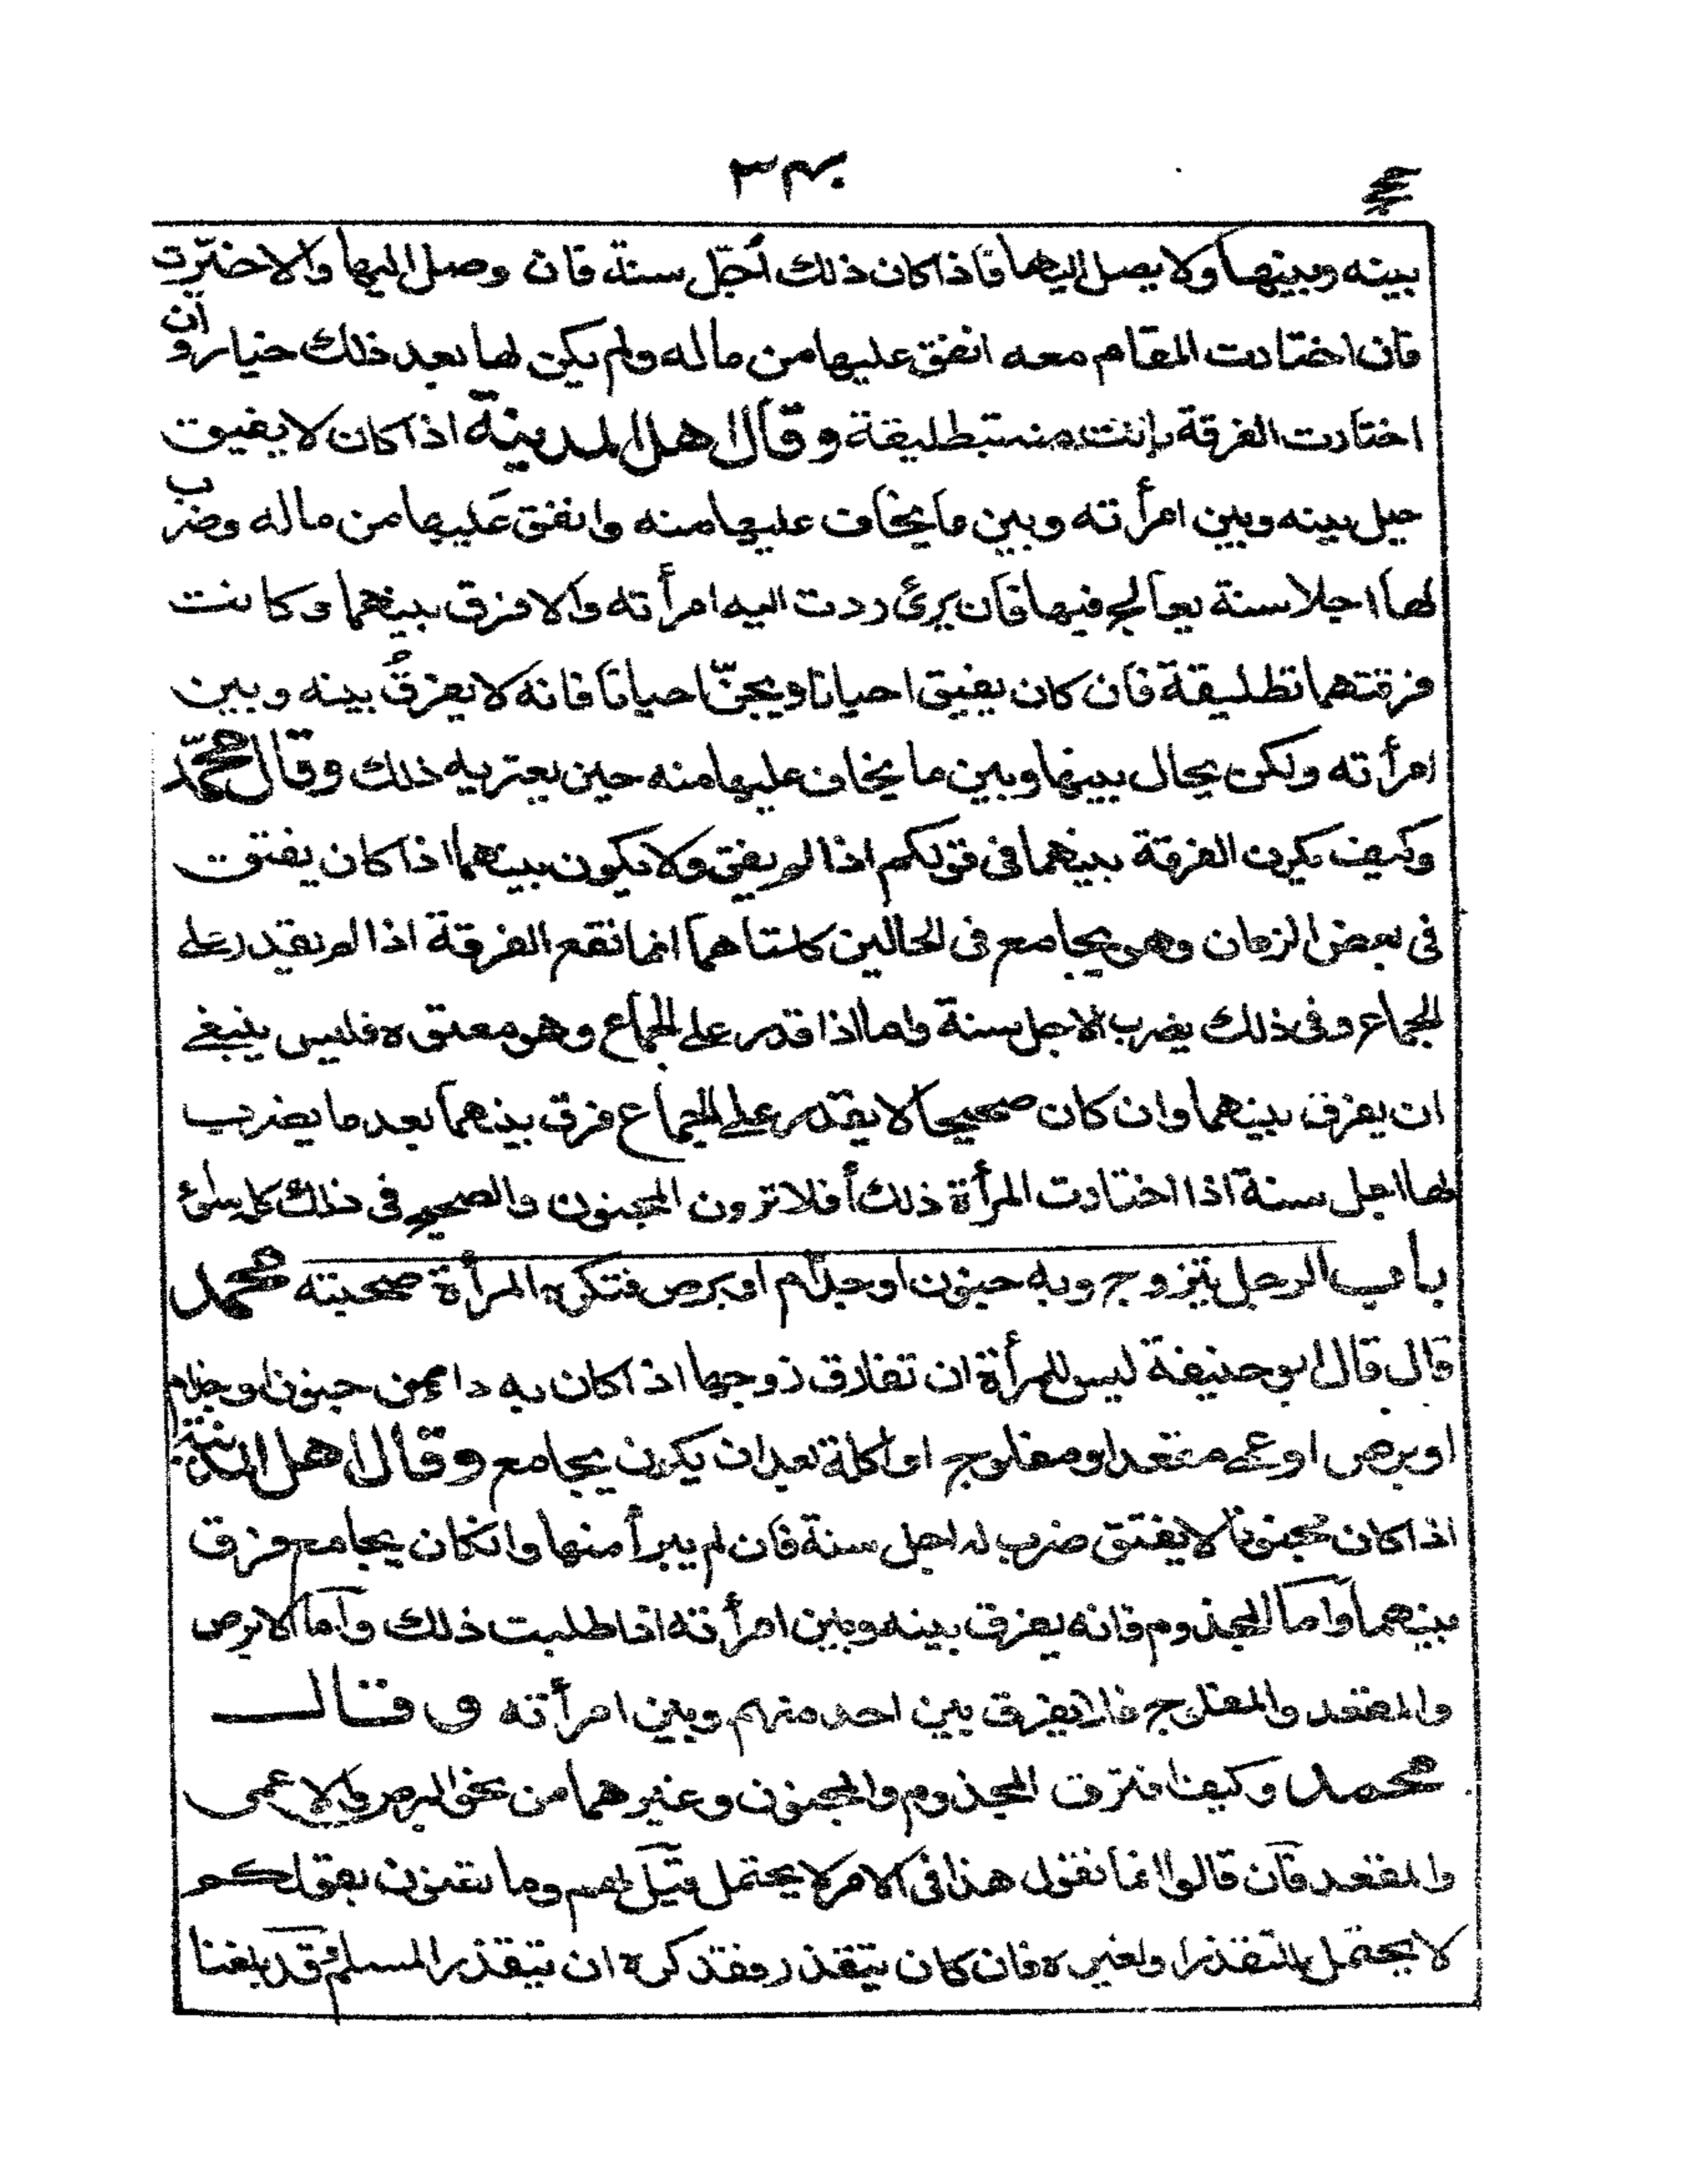 بينه وبينها ولا يصل اليها فاذا كان ذلك أجّل سنة فان وصل اليها والا خيّرت
فان اختارت المقام معه انفق عليها من ماله ولم يكن لها بعد ذلك خيار وان
اختارت الفرقة بانت منه بتطليقة وقال اهل المدينة اذا كان لا يفيق
حيل بينه وبين امرأته وبين ما يخاف عليها منه وانفق عليها من ماله وضرب
لها اجلا سنة يعالج فيها فان برئ ردت اليه امرأته والا فرق بينهما وكانت
فرقتهما تطليقة فان كان يفيق احيانا ويجنّ احيانا فانه لا يفرق بينه وبين
امرأته ولكن يحال بينها وبين ما يخاف عليها منه حين يعتريه ذلك وقال محمّد
وكيف يكون الفرقة بينهما فى قولكم اذا لم يفق ولا يكون بينهما اذا كان يفيق
فى بعض الزمان وهو يجامع فى الحالين كلتاهما انما تقع الفرقة اذا لم يقدر على
الجماع وفى ذلك يضرب الاجل سنة واما اذا قدر على الجماع وهو معتوه فليس ينبغى
ان يفرق بينهما وان كان صحيحا لا يقدر على الجماع فرق بينهما بعد ما يضرب
لها اجل سنة اذا اختارت المرأة ذلك أفلا ترون المجنون والصحيح فى ذلك كله سواء
باب الرجل يتزوج وبه جنون او جذام او برص فتكره المرأة صحبته محمد
قال قال ابو حنيفة ليس للمرأة ان تفارق زوجها اذا كان به داء من جنون او جذام
او برص او عمى مقعد او مفلوج او اكلة بعد ان يكون يجامع وقال اهل المدينة
اذا كان مجنونا لا يفيق ضرب له اجل سنة فان لم يبرأ منها وان كان يجامع فرق
بينهما واما المجذوم فانه يفرق بينه وبين امرأته اذا طلبت ذلك واما الابرص
والمقعد والمفلوج فلا يفرق بين احد منهم وبين امرأته وقال
محمد وكيف افترق المجذوم والمجنون وغيرهما من نحو البرص والاعمى
والمقعد فان قالوا انما نقول هذا فى الامر لا يحتمل قيل لهم وما تعنون بقولكم
لا يحتمل للتقذر او لغيره فان كان يتقذر فقد كره ان يتقذر المسلم وقد بلغنا